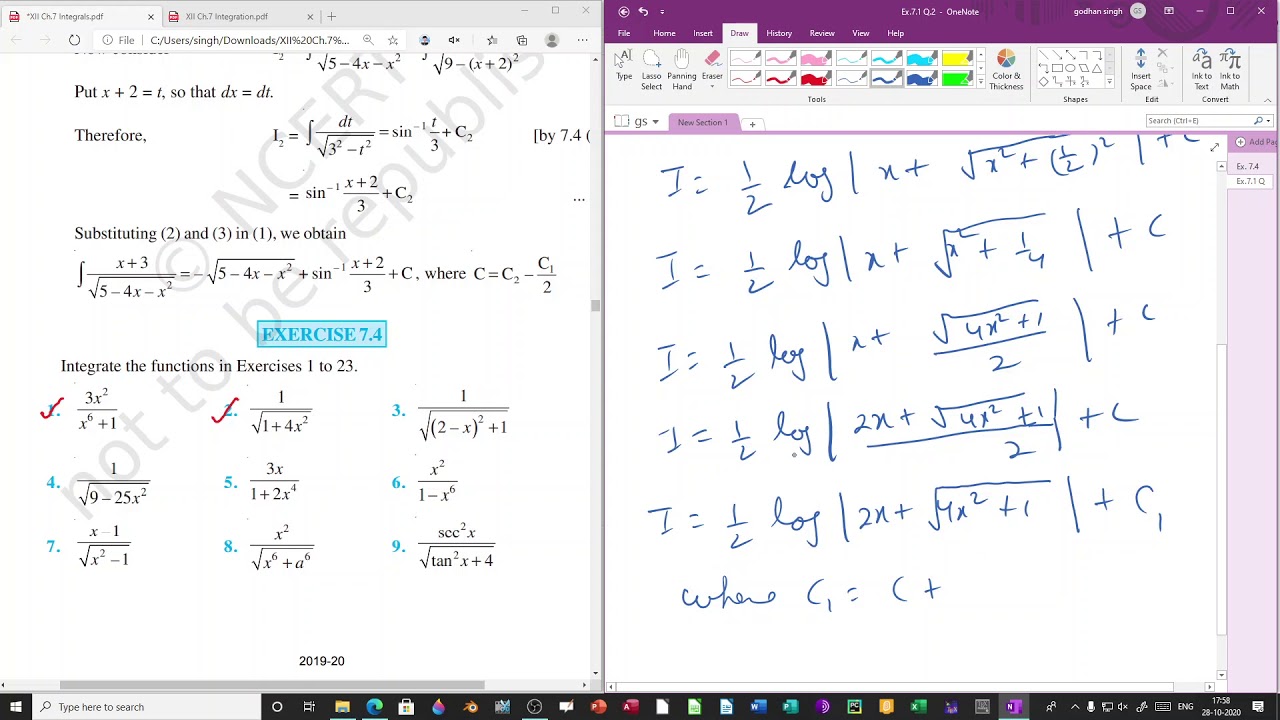 *XII Ch.7 Integrals.pdf
XII Ch.7 Integration.pdf
File C:/Users/singh/Downloads/XII%20Ch.7%...
√5 – 4x – x² √9 – (x + 2)²
Put x + 2 = t, so that dx = dt.
Therefore, I₂ = ∫ dt/√(3² – t²) = sin⁻¹ t/3 + C₂ [by 7.4 (
= sin⁻¹ (x + 2)/3 + C₂ ...
Substituting (2) and (3) in (1), we obtain
∫ (x + 3)/√(5 – 4x – x²) = –√(5 – 4x – x²) + sin⁻¹ (x + 2)/3 + C, where C = C₂ – C₁/2
EXERCISE 7.4
Integrate the functions in Exercises 1 to 23.
1. 3x²/(x⁶ + 1) 2. 1/√(1 + 4x²) 3. 1/√((2 – x)² + 1)
4. 1/√(9 – 25x²) 5. 3x/(1 + 2x⁴) 6. x²/(1 – x⁶)
7. (x – 1)/√(x² – 1) 8. x²/√(x⁶ + a⁶) 9. sec² x/√(tan² x + 4)
2019-20
© NCERT
not to be republis
Ex.7.1 Q.2 - OneNote
godhan singh GS
File Home Insert Draw History Review View Help
Type
Lasso Select
Panning Hand
Eraser
Color & Thickness
Shapes
Insert Space
Ink to Text
Ink to Math
Tools Shapes Edit Convert
gs New Section 1
Search (Ctrl+E)
Add Pag
Ex. 7.4
Ex.7.1 Q
I = 1/2 log | x + √(x² + (1/2)²) | + C
I = 1/2 log | x + √(x² + 1/4) | + C
I = 1/2 log | x + √(4x² + 1)/2 | + C
I = 1/2 log | (2x + √(4x² + 1))/2 | + C
I = 1/2 log | 2x + √(4x² + 1) | + C₁
where C₁ = C +
Type here to search
17:58
28-10-2020